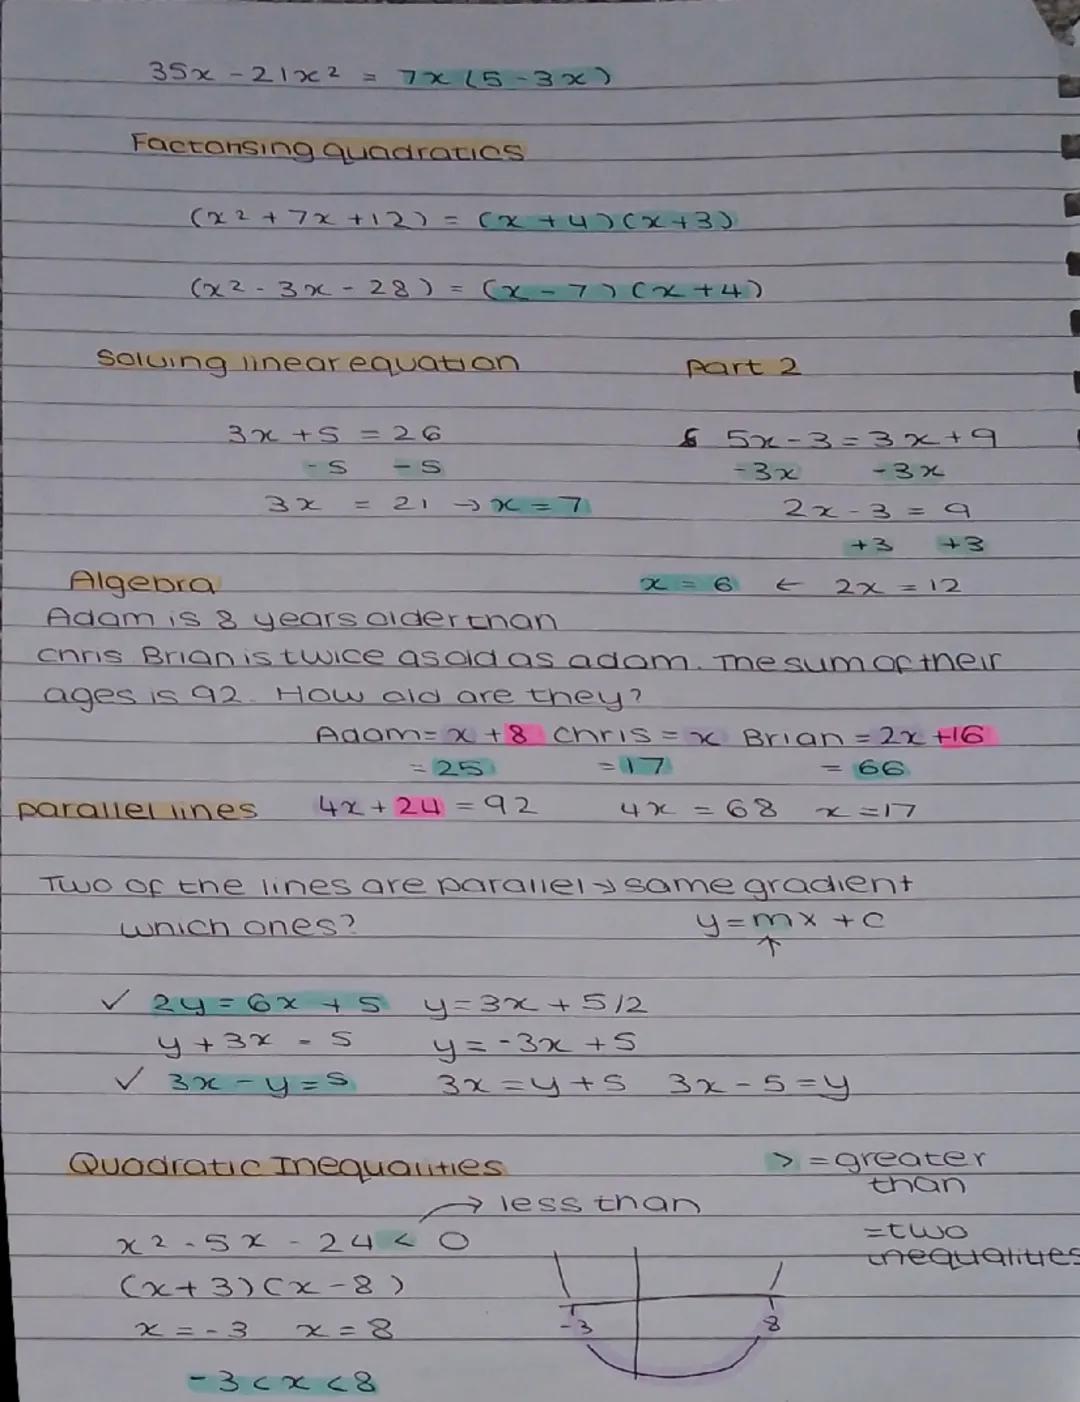 35x - 21x² = 7x(5-3x)
Factorising quadratics
(x² + 7x + 12) = (x + 4)(x + 3)
(x² - 3x - 28) = (x - 7)(x + 4)
Solving linear equation
3x + 5 = 26
-5 -5
3x = 21 → x = 7
part 2
5x - 3 = 3x + 9
-3x -3x
2x - 3 = 9
+3 +3
x = 6 ← 2x = 12
Algebra
Adam is 8 years older than
chris Brian is twice as old as adam. The sum of their
ages is 92. How old are they?
Adam = x + 8 Chris = x Brian = 2x + 16
= 25 = 17 = 66
4x + 24 = 92 4x = 68 x = 17
parallel lines
Two of the lines are parallel → same gradient
which ones? y = mx + c
↑
✓ 2y = 6x + 5 y = 3x + 5/2
y + 3x = 5 y = -3x + 5
✓ 3x - y = 5 3x = y + 5 3x - 5 = y
Quadratic Inequalities
→ less than
x² - 5x - 24 < 0
(x + 3)(x - 8)
x = -3 x = 8
-3 < x < 8
> = greater
than
= two
inequalities
-3 8